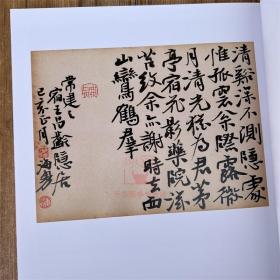 清谿深不測隱處
惟孤雲松際露微
月清光猶為君茅
亭宿花影藥院滋
苔紋余亦謝時去西
山鸞鶴羣
常建
宿王昌齡隱居
己亥正月